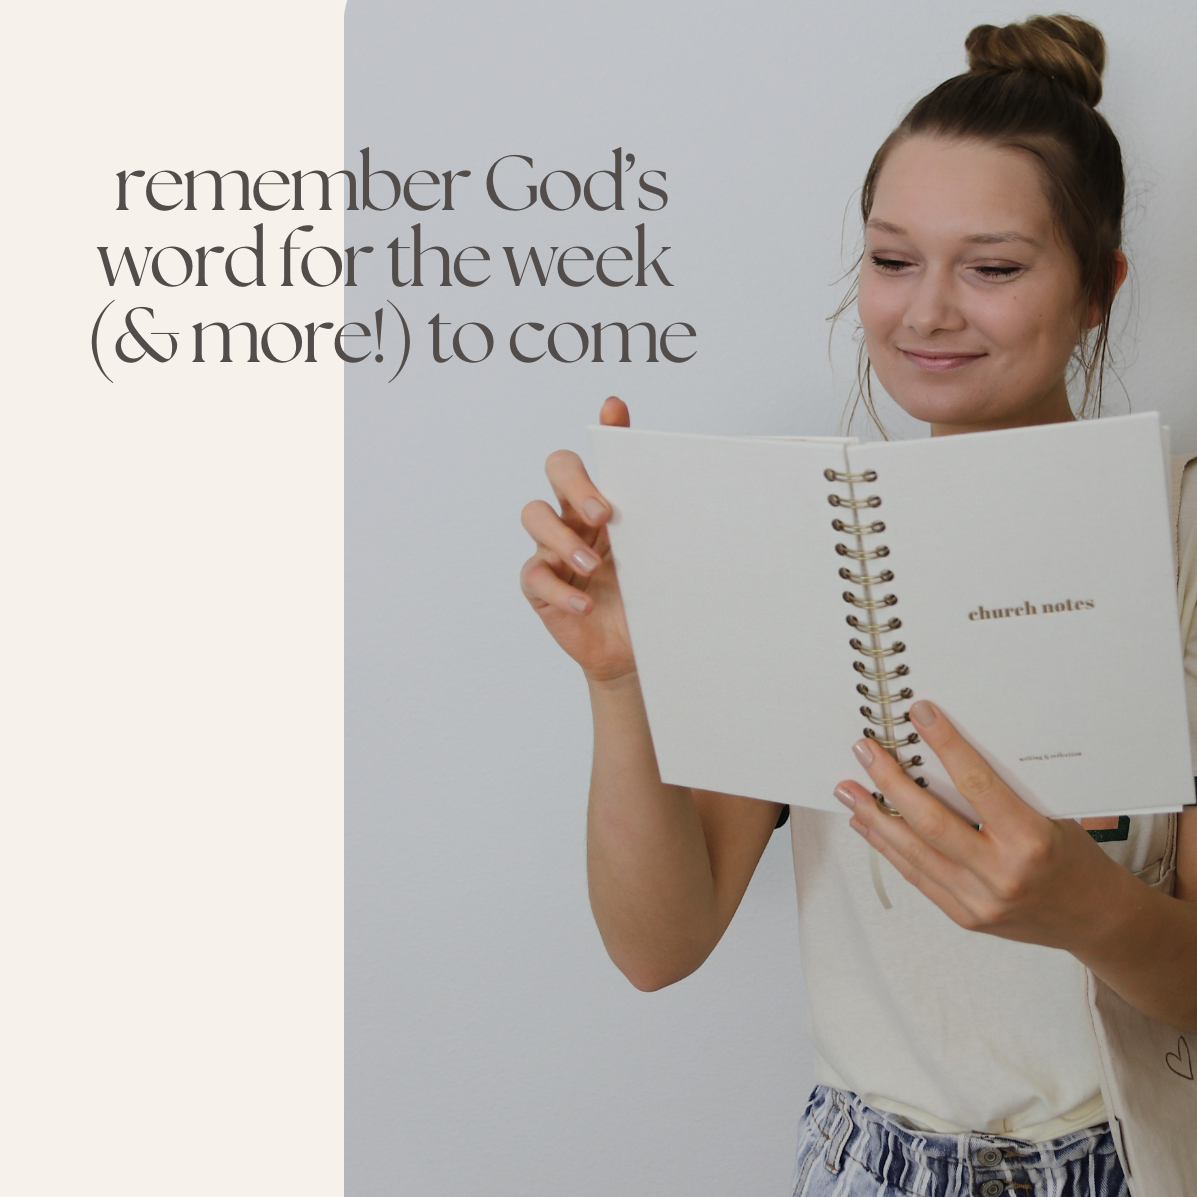 remember God's
word for the week
(& more!) to come
church notes
writing & reflection